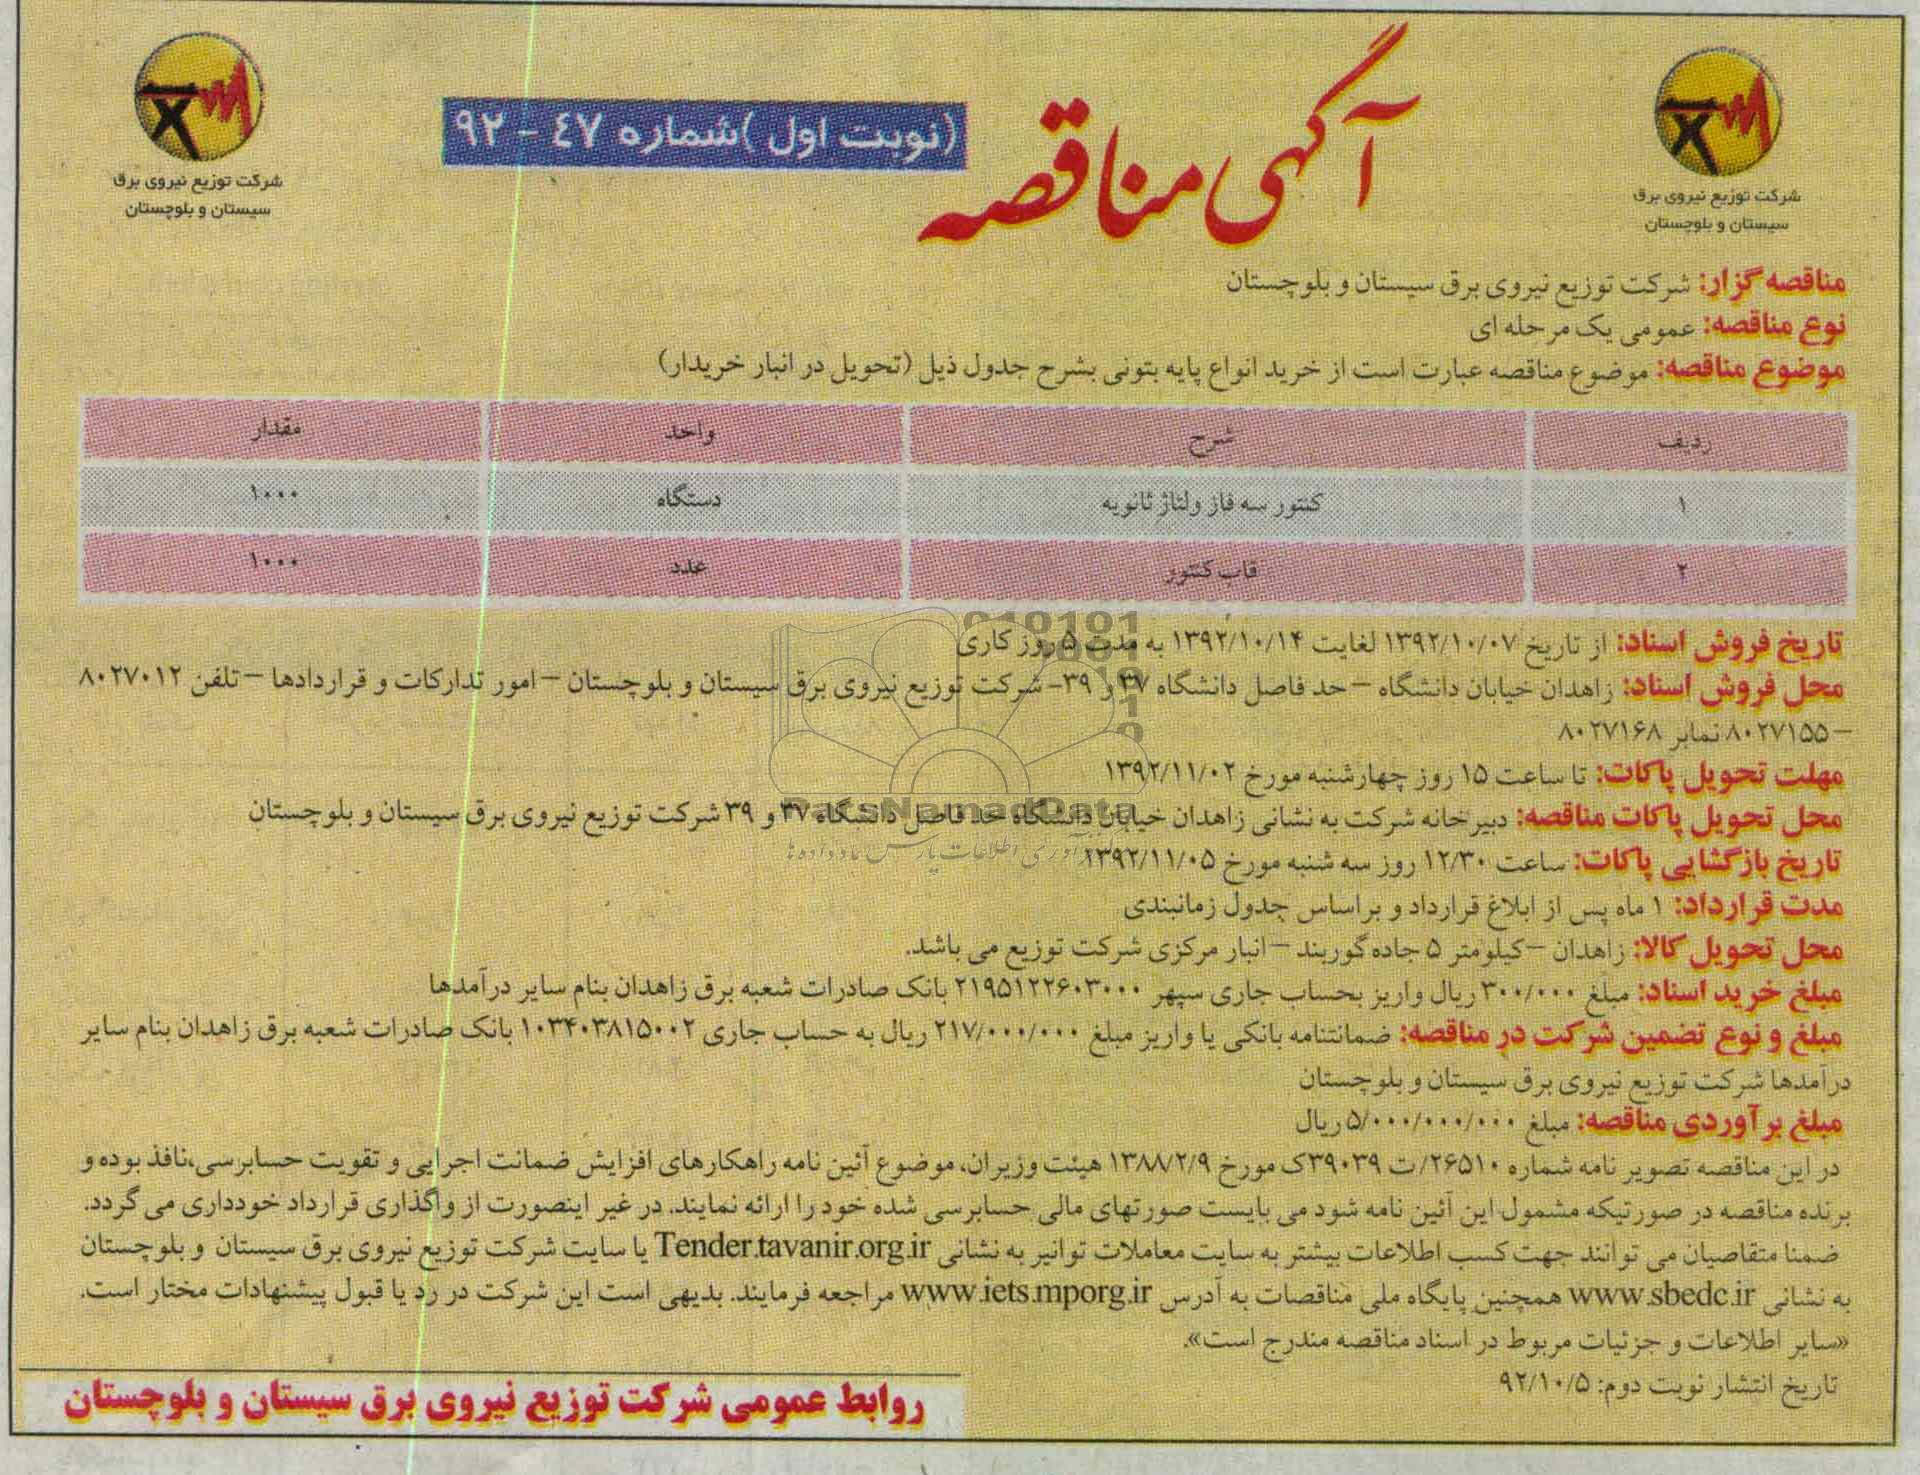 شرکت توزیع نیروی برق
سیستان و بلوچستان
آگهی مناقصه
(نوبت اول )شماره ٤٧ - ٩٢
شرکت توزیع نیروی برق
سیستان و بلوچستان
مناقصه گزار: شرکت توزیع نیروی برق سیستان و بلوچستان
نوع مناقصه: عمومی یک مرحله ای
موضوع مناقصه: موضوع مناقصه عبارت است از خرید انواع پایه بتونی بشرح جدول ذیل (تحویل در انبار خریدار)
ردیف شرح واحد مقدار
۱ کنتور سه فاز ولتاژ ثانویه دستگاه ۱۰۰۰
۲ قاب کنتور عدد ۱۰۰۰
تاریخ فروش اسناد: از تاریخ ۱۳۹۲/۱۰/۰۷ لغایت ۱۳۹۲/۱۰/۱۴ به مدت ۵ روز کاری
محل فروش اسناد: زاهدان خیابان دانشگاه – حد فاصل دانشگاه ۳۷ و ۳۹- شرکت توزیع نیروی برق سیستان و بلوچستان – امور تدارکات و قراردادها – تلفن ۸۰۲۷۰۱۲
– ۸۰۲۷۱۵۵ نمابر ۸۰۲۷۱۶۸
مهلت تحویل پاکات: تا ساعت ۱۵ روز چهارشنبه مورخ ۱۳۹۲/۱۱/۰۲
محل تحویل پاکات مناقصه: دبیرخانه شرکت به نشانی زاهدان خیابان دانشگاه حد فاصل دانشگاه ۳۷ و ۳۹ شرکت توزیع نیروی برق سیستان و بلوچستان
ParsNamadData
تاریخ بازگشایی پاکات: ساعت ۱۲/۳۰ روز سه شنبه مورخ ۱۳۹۲/۱۱/۰۵
مدت قرارداد: ۱ ماه پس از ابلاغ قرارداد و براساس جدول زمانبندی
محل تحویل کالا: زاهدان – کیلومتر ۵ جاده گوربند – انبار مرکزی شرکت توزیع می باشد.
مبلغ خرید اسناد: مبلغ ۳۰۰/۰۰۰ ریال واریز بحساب جاری سپهر ۲۱۹۵۱۲۲۶۰۳۰۰۰ بانک صادرات شعبه برق زاهدان بنام سایر درآمدها
مبلغ و نوع تضمین شرکت در مناقصه: ضمانتنامه بانکی یا واریز مبلغ ۲۱۷/۰۰۰/۰۰۰ ریال به حساب جاری ۱۰۳۴۰۳۸۱۵۰۰۲ بانک صادرات شعبه برق زاهدان بنام سایر
درآمدها شرکت توزیع نیروی برق سیستان و بلوچستان
مبلغ برآوردی مناقصه: مبلغ ۵/۰۰۰/۰۰۰/۰۰۰ ریال
در این مناقصه تصویر نامه شماره ۲۶۵۱۰/ت ۳۹۰۳۹ک مورخ ۱۳۸۸/۲/۹ هیئت وزیران، موضوع آئین نامه راهکارهای افزایش ضمانت اجرایی و تقویت حسابرسی،نافذ بوده و
برنده مناقصه در صورتیکه مشمول این آئین نامه شود می بایست صورتهای مالی حسابرسی شده خود را ارائه نمایند. در غیر اینصورت از واگذاری قرارداد خودداری می گردد.
ضمنا متقاصیان می توانند جهت کسب اطلاعات بیشتر به سایت معاملات توانیر به نشانی Tender.tavanir.org.ir یا سایت شرکت توزیع نیروی برق سیستان و بلوچستان
به نشانی www.sbedc.ir همچنین پایگاه ملی مناقصات به آدرس www.iets.mporg.ir مراجعه فرمایند. بدیهی است این شرکت در رد یا قبول پیشنهادات مختار است.
«سایر اطلاعات و جزئیات مربوط در اسناد مناقصه مندرج است».
تاریخ انتشار نوبت دوم: ۹۲/۱۰/۵
روابط عمومی شرکت توزیع نیروی برق سیستان و بلوچستان